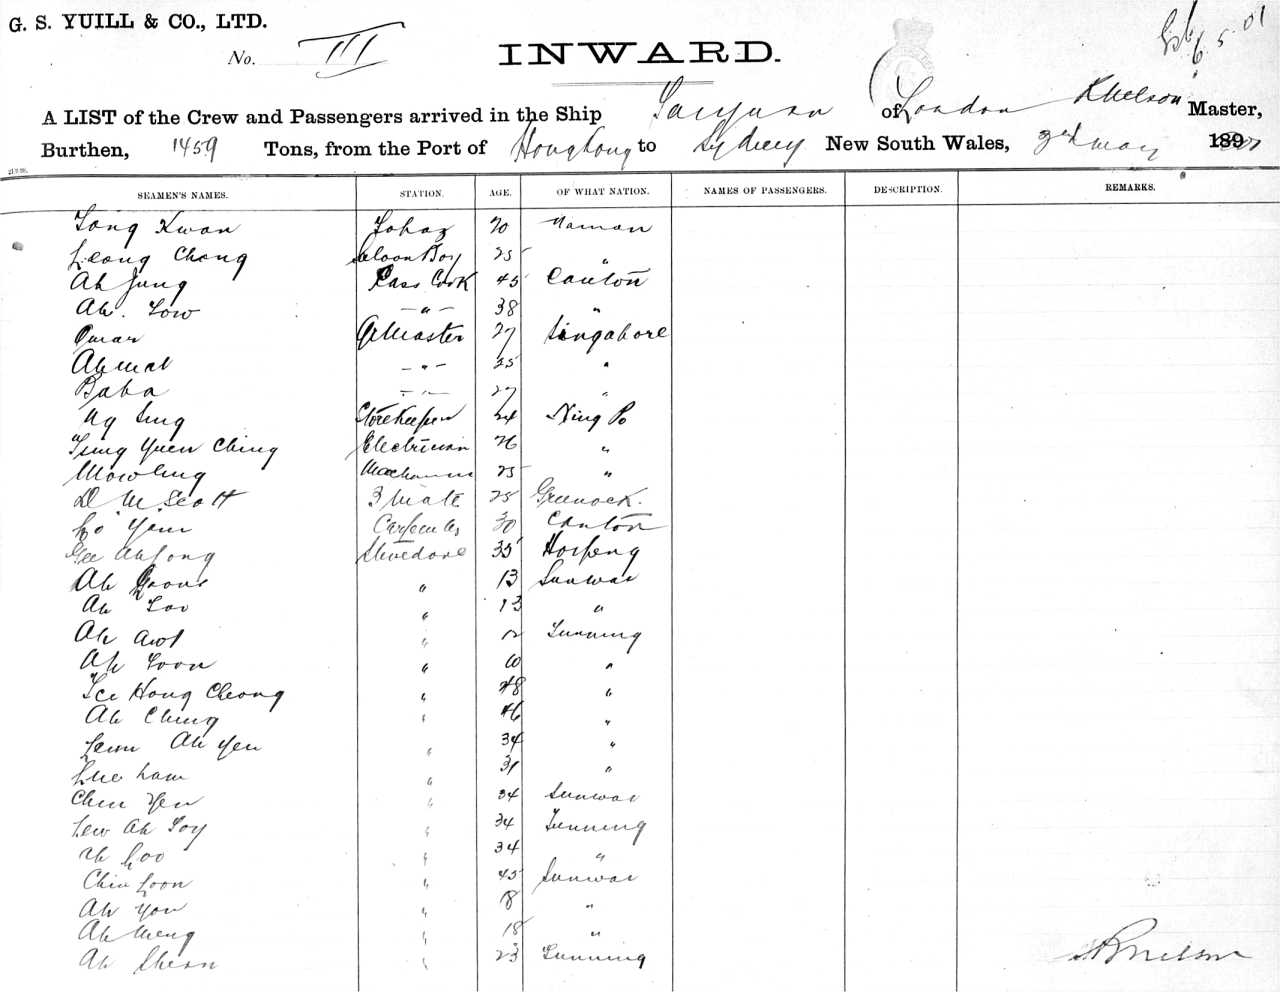 G. S. YUILL & CO., LTD.
No. III
INWARD.
6 5 01
A LIST of the Crew and Passengers arrived in the Ship Taiyuan of London R Nelson Master,
Burthen, 1459 Tons, from the Port of Hong Kong to Sydney New South Wales, 3rd May 189
SEAMEN'S NAMES. STATION. AGE. OF WHAT NATION. NAMES OF PASSENGERS. DESCRIPTION. REMARKS.
Tong Kwan 20
Leong Chong Saloon Boy 25 "
Ah Jung Pass Cook 45 Canton
Ah. Low -"- 38 "
Omar QrMaster 27 Singapore
Ahmat -"- 25 "
Baba -"- 27 "
Ag Sing Storekeeper 24 Ning Po
Tsung Yuen Ching Electrician 26 "
Mowling 25 "
D. M. Scott 3 Mate 25 Greenock.
Ho Yem Carpenter 30 Canton
Gee Ah Fong Stevedore 35
Ah 13 Sunwai
Ah Loo " 13 "
Ah " 12 Sunning
Ah Loon " "
Lee Hong Cheong " 48 "
Ah Ching " 46 "
Leun Ah Yen " 34 "
Lue Lam " 31 "
Chin Yen " 34 Sunwai
Lew Ah Toy " 34 Sunning
Ah Loo " 34 "
Chin Loon " 45 Sunwai
Ah You " 8 "
Ah Meng " 18 "
Ah Shean " 23 Sunning
R Nelson